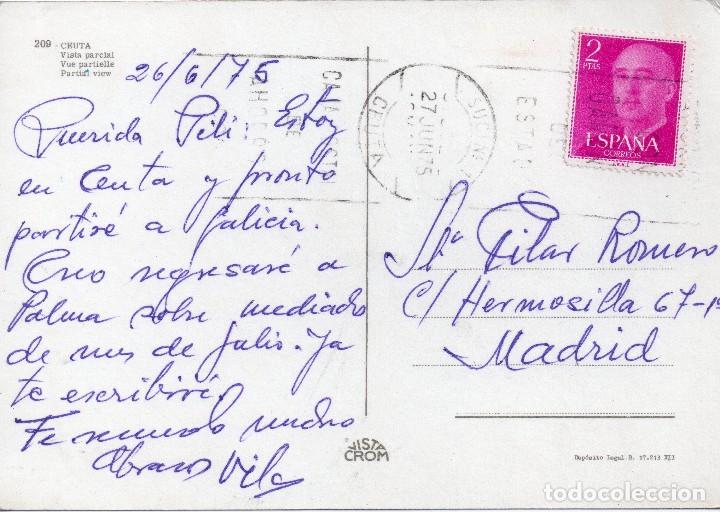 209 - CEUTA
Vista parcial
Vue partielle
Partial view
26/6/75
Querida Pili Estoy
en Ceuta y pronto
partiré a Galicia.
Creo regresaré a
Palma sobre mediados
de mes de Julio. Ya
te escribiré.
Te mando mucho
Abrazos Vila
VISTA
CROM
CEUTA
27 JUN 75
2
PTAS
ESPAÑA
CORREOS
Sta Pilar Romero
C/ Hermosilla 67-1º
Madrid
Depósito Legal B. 17.213 XII
todocoleccion